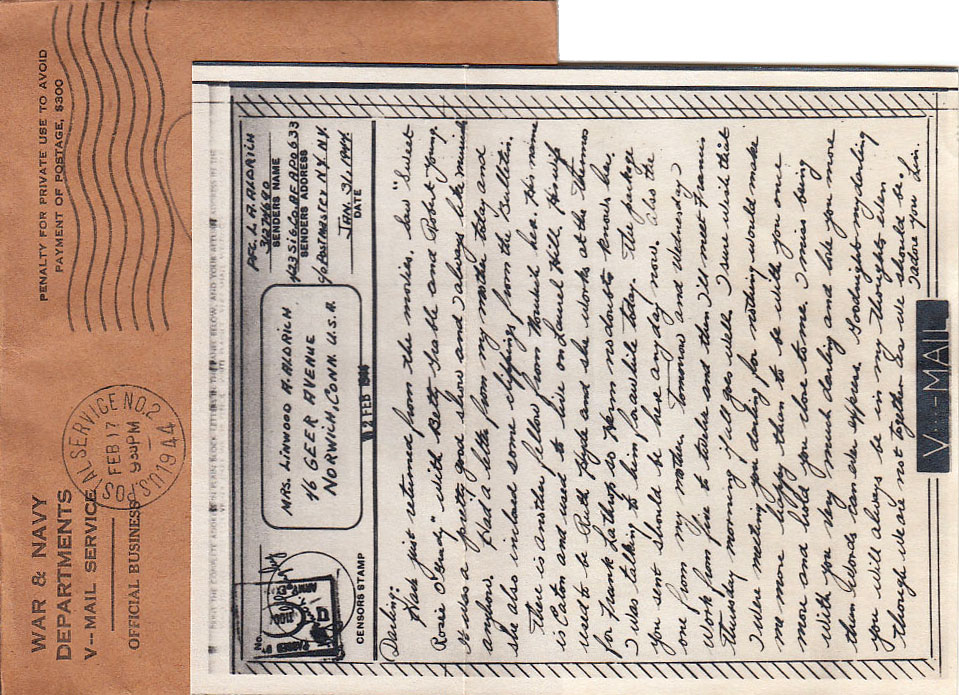 WAR & NAVY
DEPARTMENTS
V--MAIL SERVICE
OFFICIAL BUSINESS
PENALTY FOR PRIVATE USE TO AVOID
PAYMENT OF POSTAGE, $300
U.S. POSTAL SERVICE NO. 2
FEB 17
930 PM
1944
No.
CENSORS STAMP
MRS. LINWOOD A. ALDRICH
46 GEER AVENUE
NORWICH, CONN. U.S.A.
PFC. L. A. ALDRICH
31274680
SENDERS NAME
423 SIG. CO. AF APO 633
SENDERS ADDRESS
c/o POSTMASTER N.Y. N.Y.
JAN. 31, 1944
DATE
12 FEB 1944
Darling:
Have just returned from the movies. Saw "Sweet
Rosie O'Grady" with Betty Grable and Robert Young.
It was a pretty good show and I always like musicals
anyhow. Had a letter from my mother today and
she also inclosed some clippings from the Bulletin.
There is another fellow from Norwich here. His name
is Caton and used to live on Laurel Hill. His wife
used to be Ruth Hyde and she works at the Thermos
for Frank Lathrop so Herm no doubt knows her.
I was talking to him for awhile today. The package
you sent should be here any day now. also the
one from my mother. Tomorrow and Wednesday I
work from five to twelve and then I'll meet Francis
Thursday morning if all goes well. I sure wish that
I were meeting you darling for nothing would make
me more happy than to be with you once
more and hold you close to me. I miss being
with you very much darling and love you more
than words can ever express. Goodnight my darling
you will always be in my thoughts even
though we are not together as we should be.
I adore you Lin.
V--MAIL